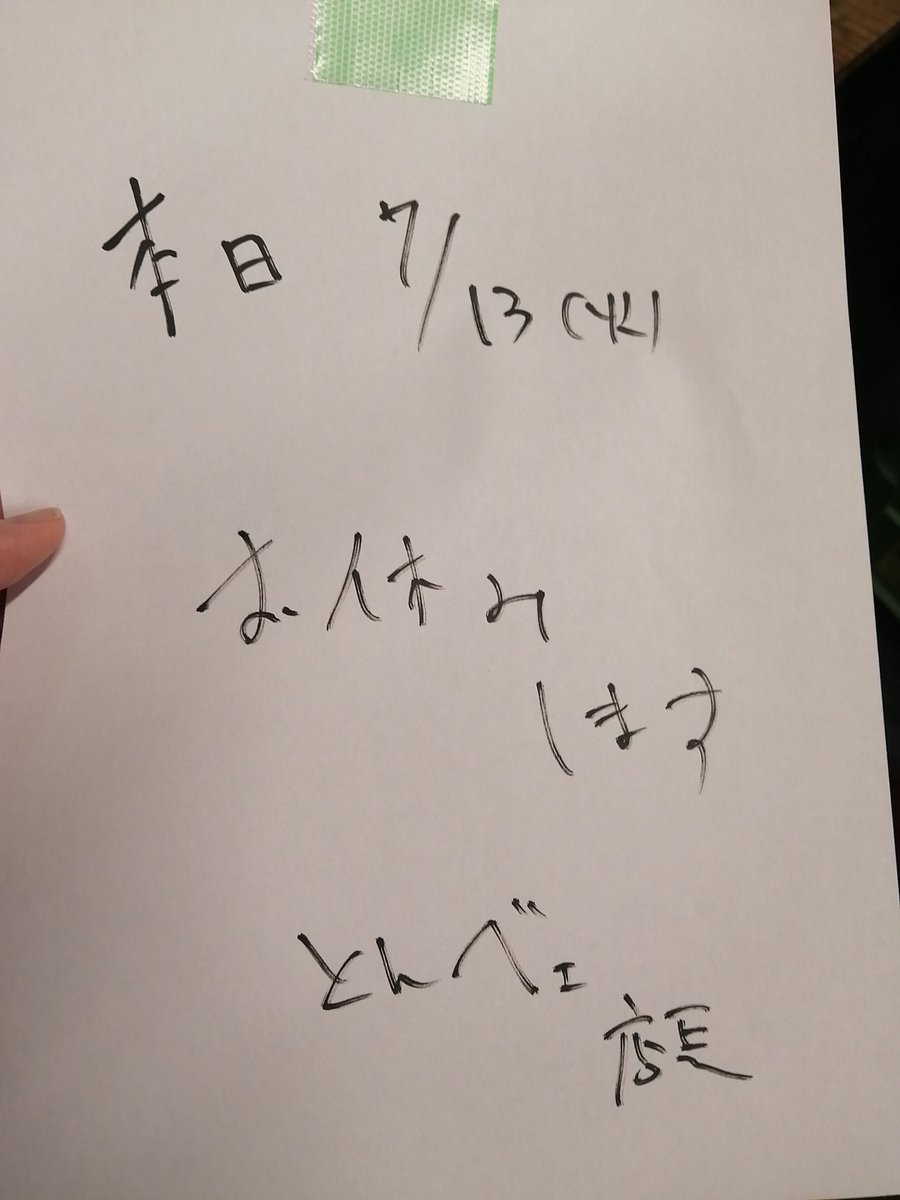 本日 7/13(火)
お休み
します
とんべェ
店長